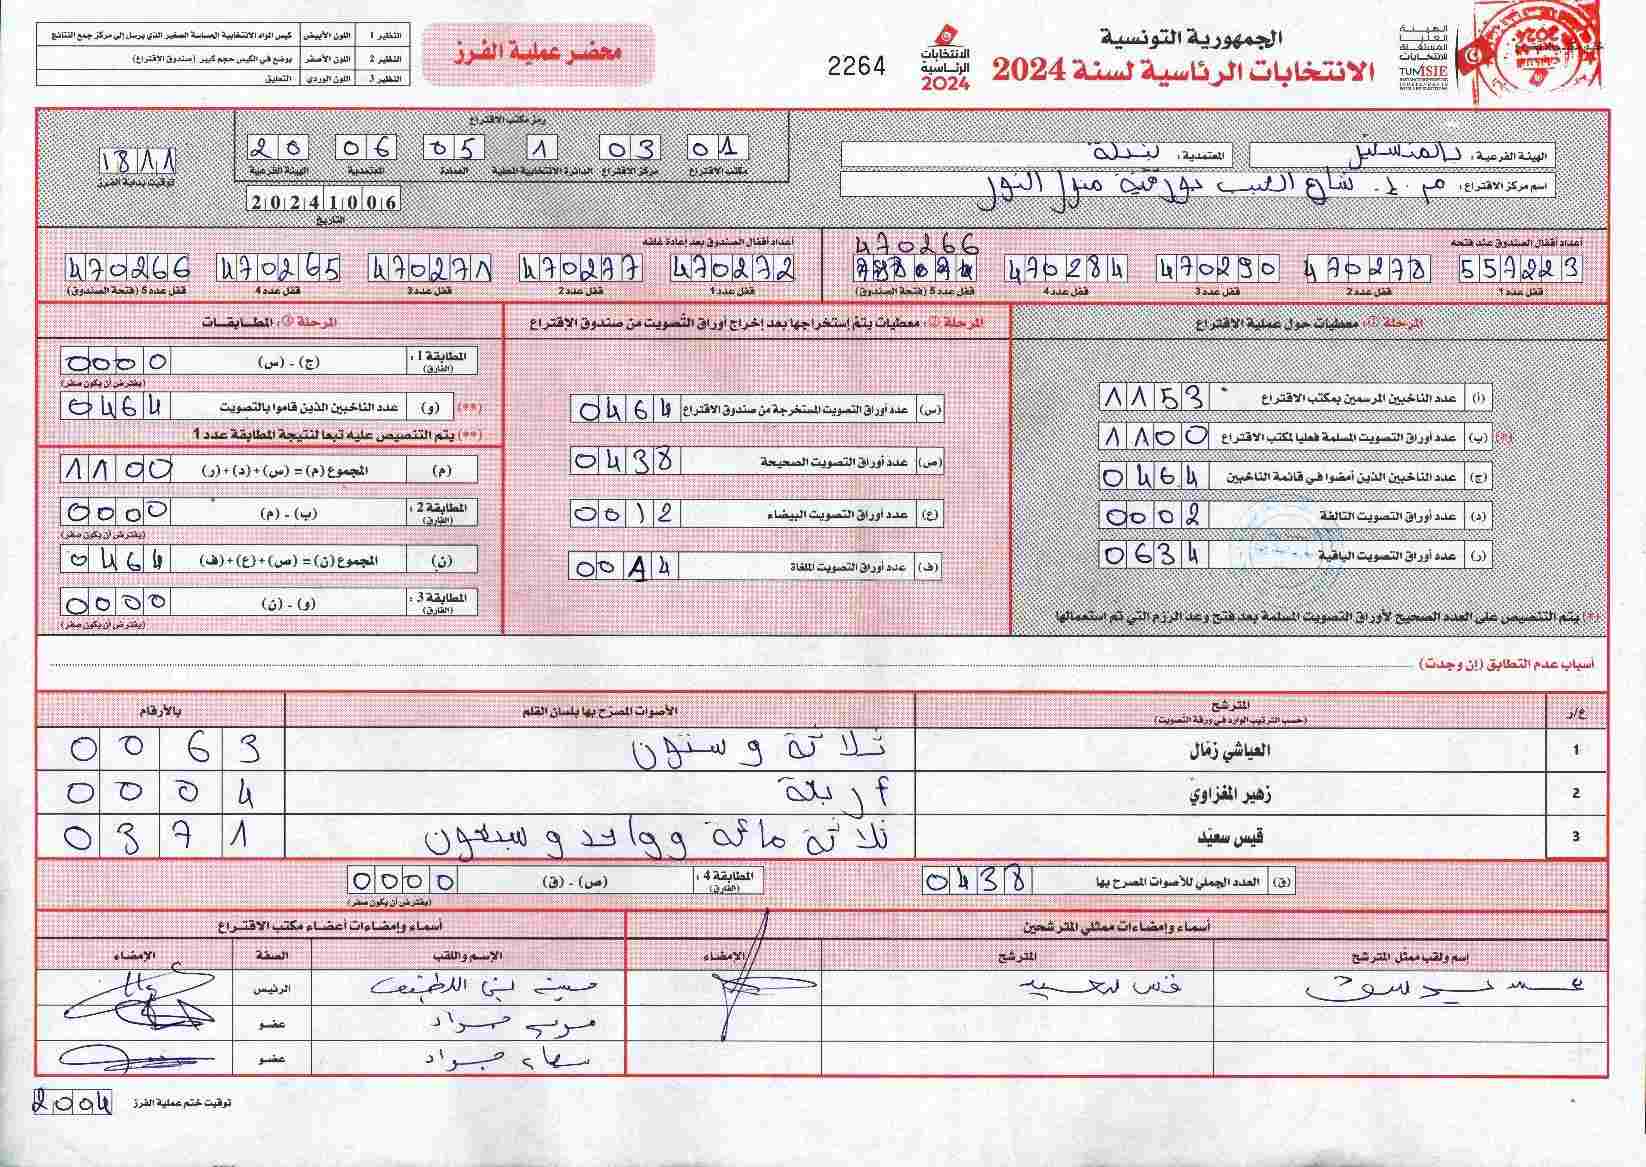 الجمهورية التونسية
الانتخابات الرئاسية لسنة 2024
الهيئة العليا المستقلة للانتخابات
TUNISIE
الانتخابات الرئاسية 2024
2264
محضر عملية الفرز
النظير 1 اللون الأبيض كيس المواد الانتخابية الحساسة الصغير الذي يرسل إلى مركز جمع النتائج
النظير 2 اللون الأصفر يوضع في الكيس حجم كبير (صندوق الاقتراع)
النظير 3 اللون الوردي التعليق
الهيئة الفرعية: المنستير
المعتمدية: بنبلة
اسم مركز الاقتراع: م.إ. شارع الحبيب بورقيبة منزل النور
رمز مكتب الاقتراع
01 03 1 05 06 20
مكتب الاقتراع مركز الاقتراع الدائرة الانتخابية المحلية العمادة المعتمدية الهيئة الفرعية
20241006
التاريخ
1811
توقيت بداية الفرز
أعداد أقفال الصندوق عند فتحه
470266
557223 470278 470290 470284
قفل عدد 1 قفل عدد 2 قفل عدد 3 قفل عدد 4 قفل عدد 5 (فتحة الصندوق)
أعداد أقفال الصندوق بعد إعادة غلقه
470272 470277 470271 470265 470266
قفل عدد 1 قفل عدد 2 قفل عدد 3 قفل عدد 4 قفل عدد 5 (فتحة الصندوق)
المرحلة ①: معطيات حول عملية الاقتراع
(أ) عدد الناخبين المرسمين بمكتب الاقتراع 1153
(*) (ب) عدد أوراق التصويت المسلمة فعليا لمكتب الاقتراع 1100
(ج) عدد الناخبين الذين أمضوا في قائمة الناخبين 0464
(د) عدد أوراق التصويت التالفة 0002
(ر) عدد أوراق التصويت الباقية 0634
(*) يتم التنصيص على العدد الصحيح لأوراق التصويت المسلمة بعد فتح وعد الرزم التي تم استعمالها
المرحلة ②: معطيات يتم إستخراجها بعد إخراج أوراق التصويت من صندوق الاقتراع
(س) عدد أوراق التصويت المستخرجة من صندوق الاقتراع 0464
(ص) عدد أوراق التصويت الصحيحة 0438
(ع) عدد أوراق التصويت البيضاء 0012
(ف) عدد أوراق التصويت الملغاة 0014
المرحلة ③: المطابقات
المطابقة 1: (الفارق) (ج) - (س) 0000
(يفترض أن يكون صفر)
(**) (و) عدد الناخبين الذين قاموا بالتصويت 0464
(**) يتم التنصيص عليه تبعا لنتيجة المطابقة عدد 1
(م) المجموع (م) = (س)+(د)+(ر) 1100
المطابقة 2: (الفارق) (ب) - (م) 0000
(يفترض أن يكون صفر)
(ن) المجموع (ن) = (ص)+(ع)+(ف) 0464
المطابقة 3: (الفارق) (و) - (ن) 0000
(يفترض أن يكون صفر)
أسباب عدم التطابق (إن وجدت)
ع/ر المترشح (حسب الترتيب الوارد في ورقة التصويت) الأصوات المصرح بها بلسان القلم بالأرقام
1 العياشي زمّال ثلاثة وستون 0063
2 زهير المغزاوي أربعة 0004
3 قيس سعيّد ثلاثة مائة وواحد وسبعون 0371
(ق) العدد الجملي للأصوات المصرح بها 0438
المطابقة 4: (الفارق) (ص) - (ق) 0000
(يفترض أن يكون صفر)
أسماء وإمضاءات ممثلي المترشحين
اسم ولقب ممثل المترشح المترشح الإمضاء
قيس سعيد
أسماء وإمضاءات أعضاء مكتب الاقتراع
الإسم واللقب الصفة الإمضاء
الرئيس
جواد عضو
سهام جواد عضو
توقيت ختم عملية الفرز 2004